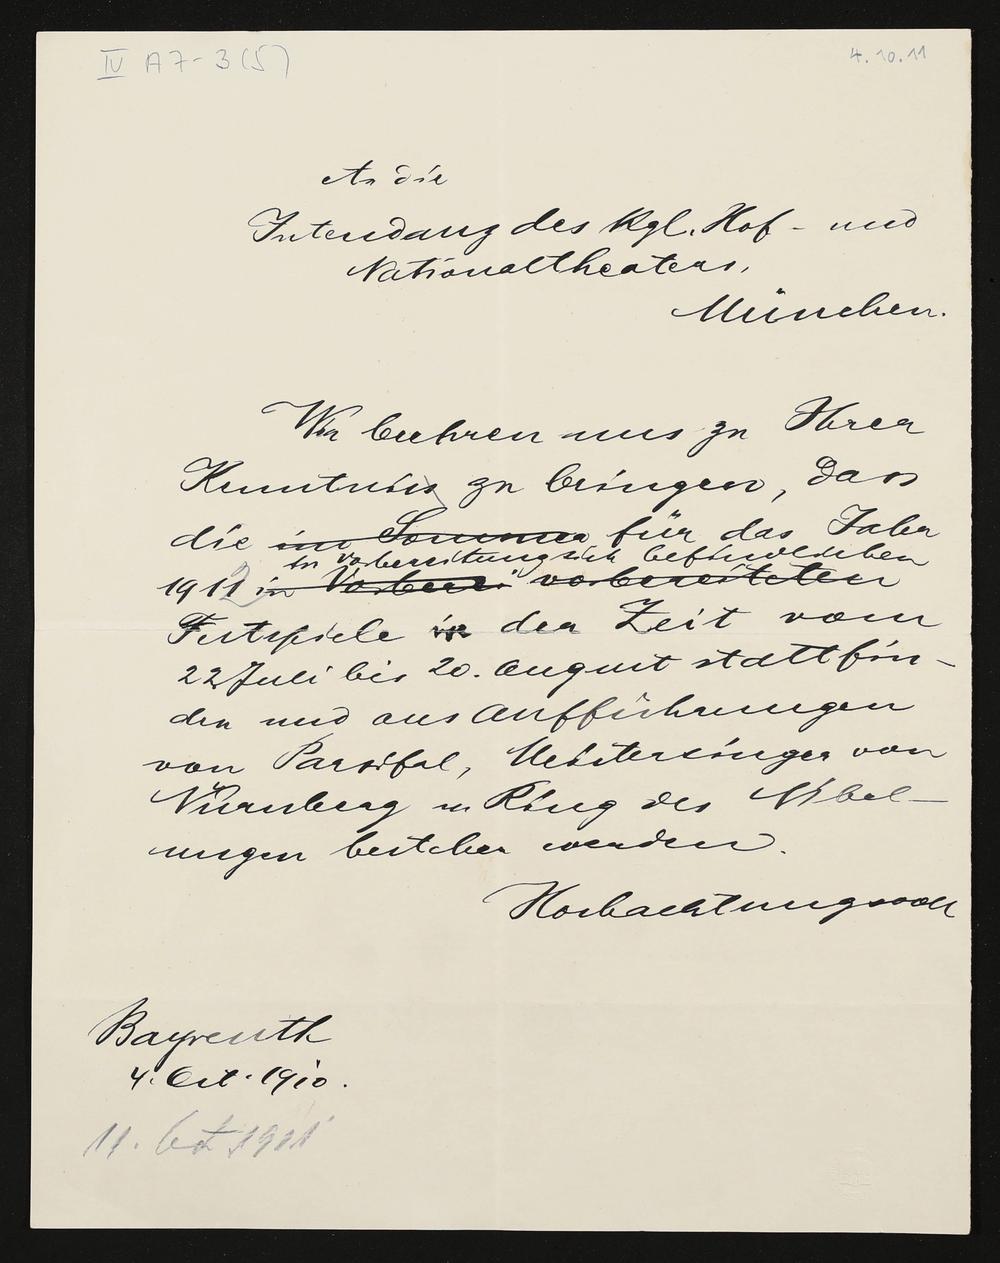 IV A 7-3 (5)
4.10.11
An die
Intendanz des Kgl. Hof- und
Nationaltheaters,
München.
Wir beehren uns zu Ihrer
Kenntniss zu bringen, dass
die im Sommer für das Jahr
in Vorbereitung sich befindlichen
1912 in Vorberei vorbereiteten
Festspiele in der Zeit vom
22 Juli bis 20. August stattfin-
den und aus Aufführungen
von Parsifal, Meistersinger von
Nürnberg u Ring des Nibel-
ungen bestehen werden.
Hochachtungsvoll
Bayreuth
4. Oct. 1910.
11. Oct 1911